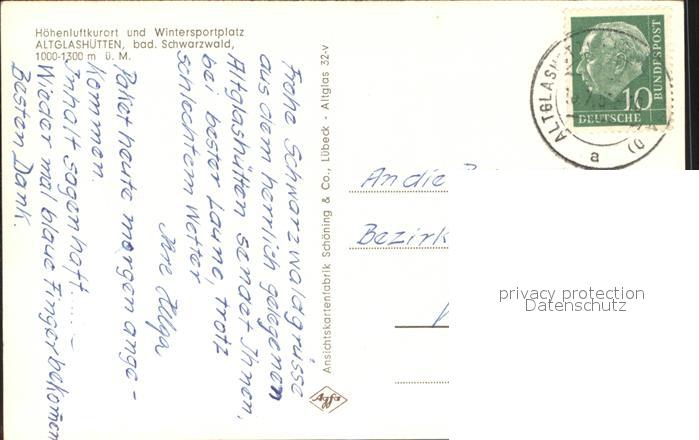 Höhenluftkurort und Wintersportplatz
ALTGLASHÜTTEN, bad. Schwarzwald,
1000-1300 m ü. M.
Frohe Schwarzwaldgrüsse
aus dem herrlich gelegenen
Altglashütten sendet Ihnen,
bei bester Laune, trotz
schlechtem Wetter
Ihre Helga
Paket heute morgen ange-
kommen.
Inhalt sagenhaft.....-
Wieder mal blaue Finger bekommen
Besten Dank.
Ansichtskartenfabrik Schöning & Co., Lübeck - Altglas 32-v
Agfa
10
DEUTSCHE
BUNDESPOST
ALTGLASH
a
An die
Bezirk
privacy protection
Datenschutz